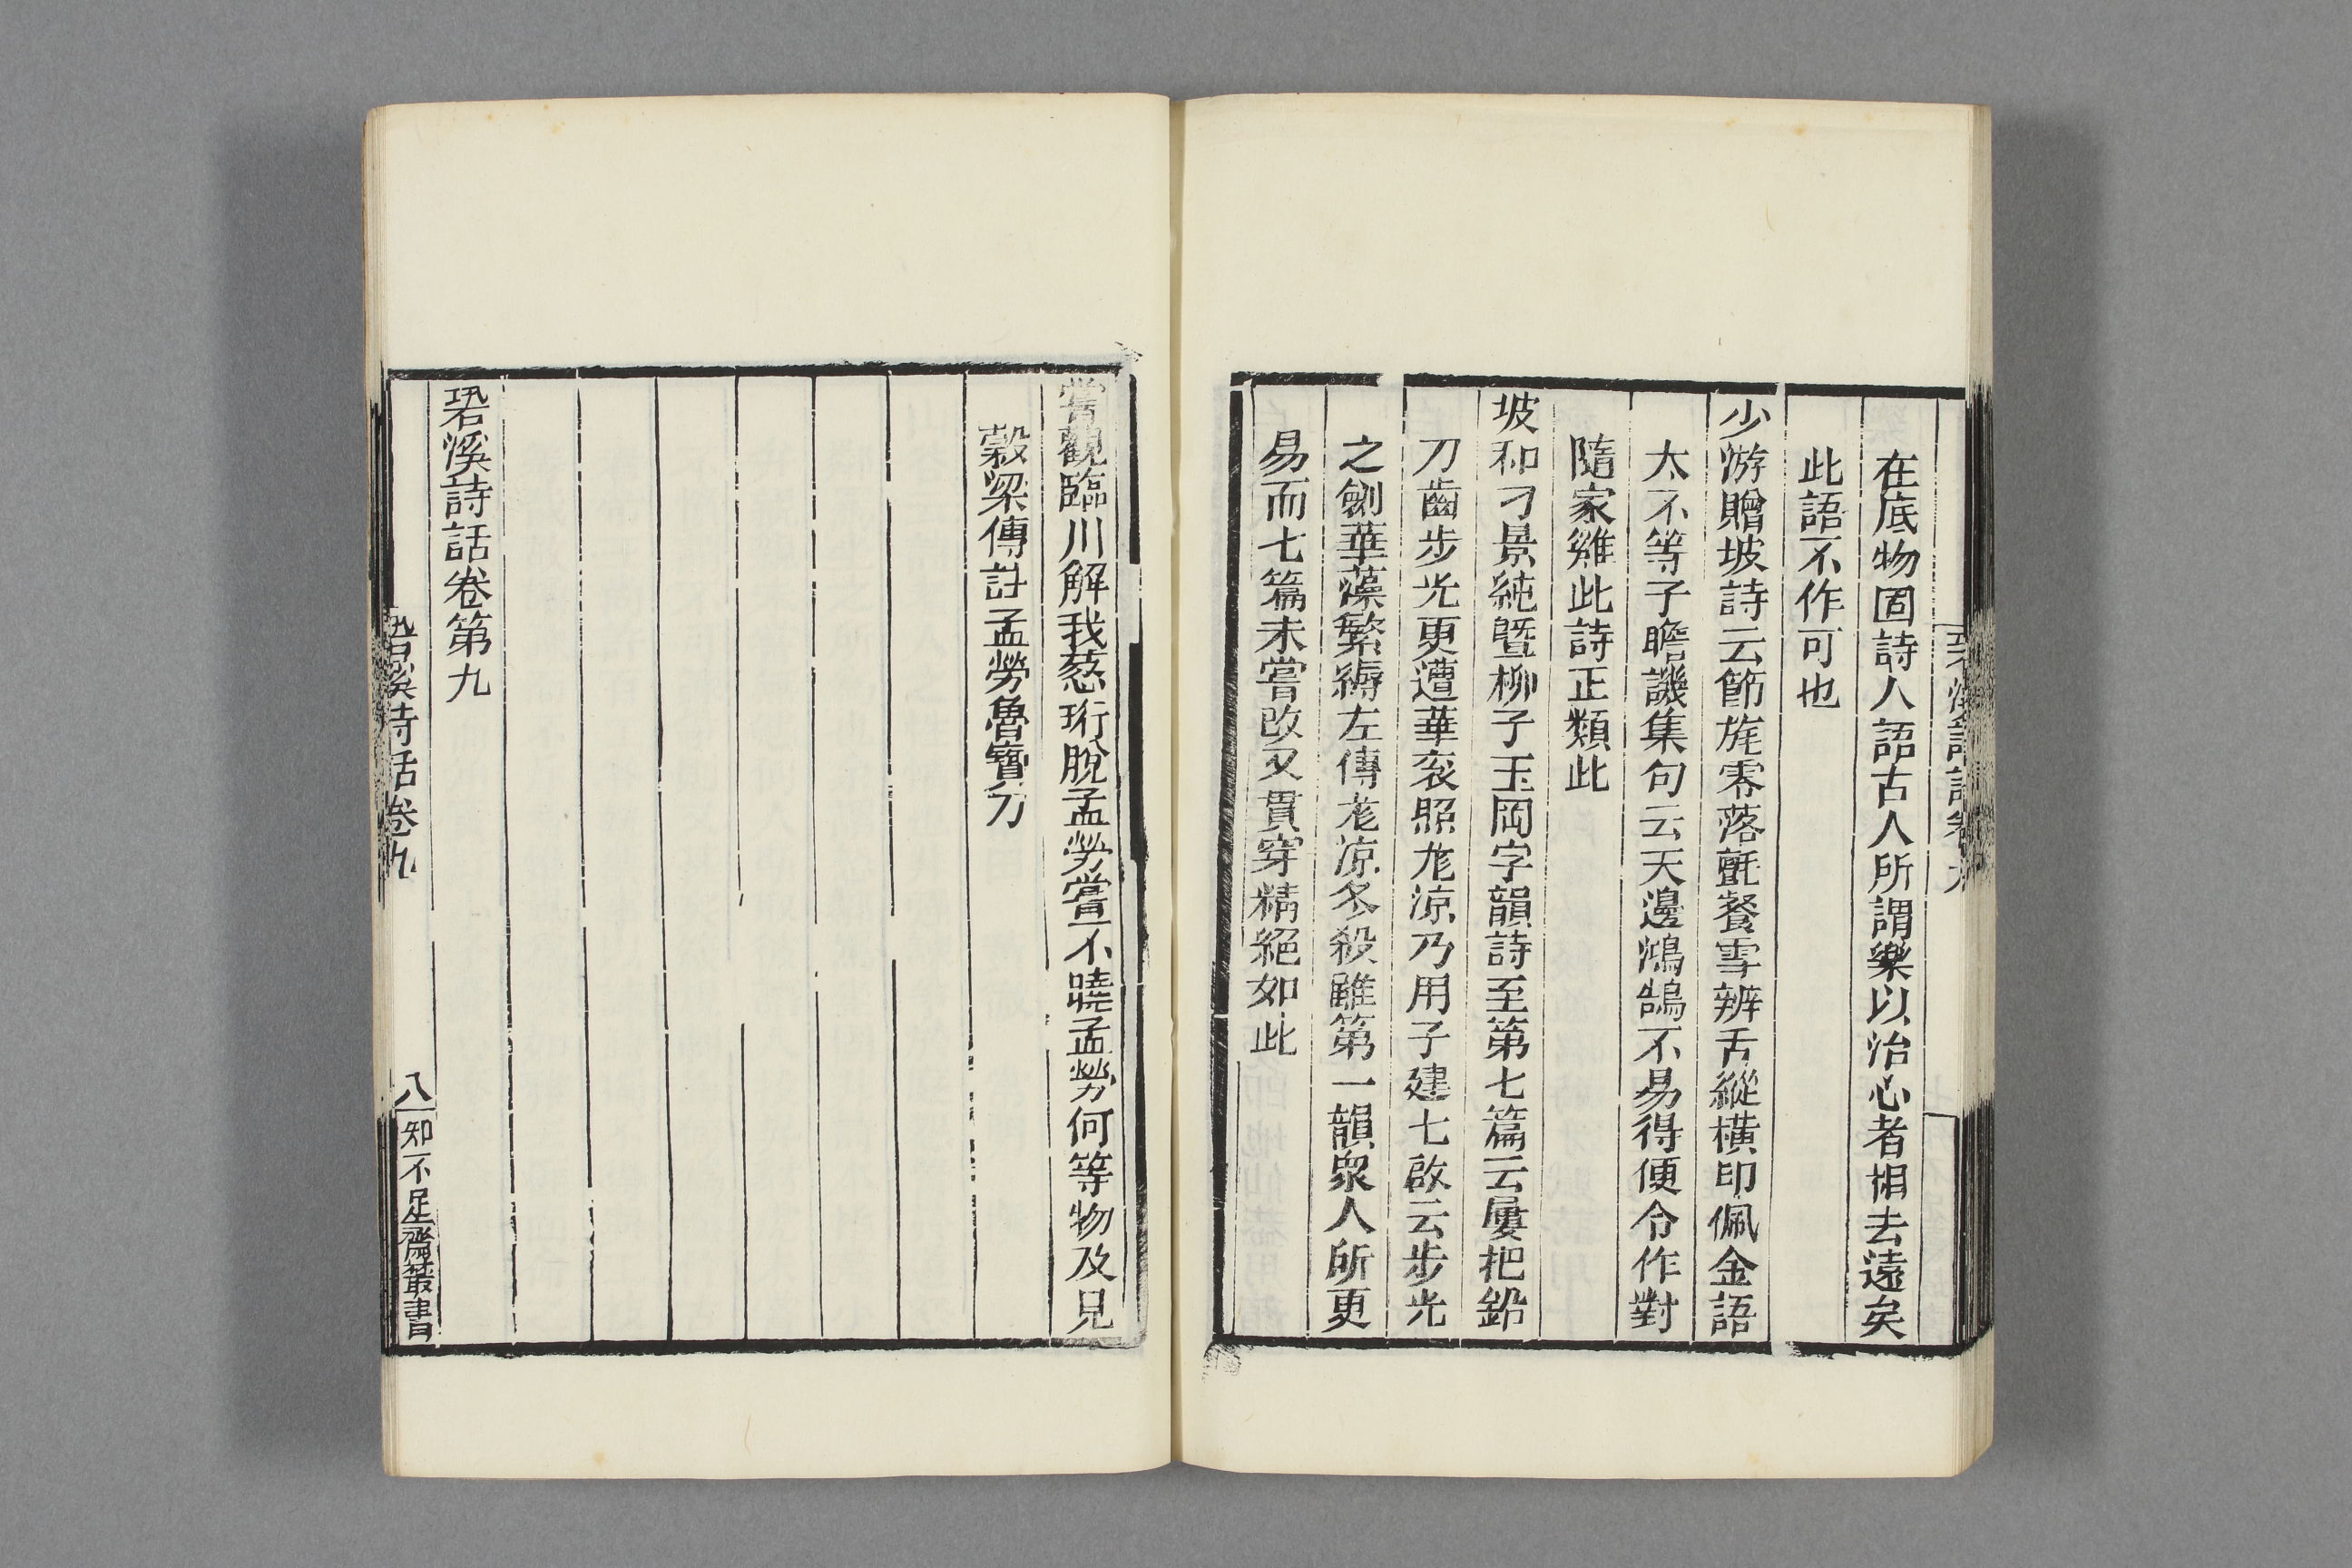 在底物固詩人語古人所謂樂以治心者相去遠矣
此語不作可也
少游贈坡詩云節旄零落氊餐雪辨舌縱橫印佩金語
太不等子瞻譏集句云天邊鴻鵠不易得便令作對
隨家雞此詩正類此
坡和刁景純曁柳子玉岡字韻詩至第七篇云屢把鉛
刀齒步光更遭華衮照尨涼乃用子建七啟云步光
之劒華藻繁縟左傳尨涼冬殺雖第一韻衆人所更
易而七篇未嘗改又貫穿精絕如此
嘗觀臨川解我葱珩脫孟勞嘗不曉孟勞何等物及見
穀梁傳註孟勞魯寶刀
䂬溪詩話卷第九
䂬溪詩話卷九
八
知不足齋叢書